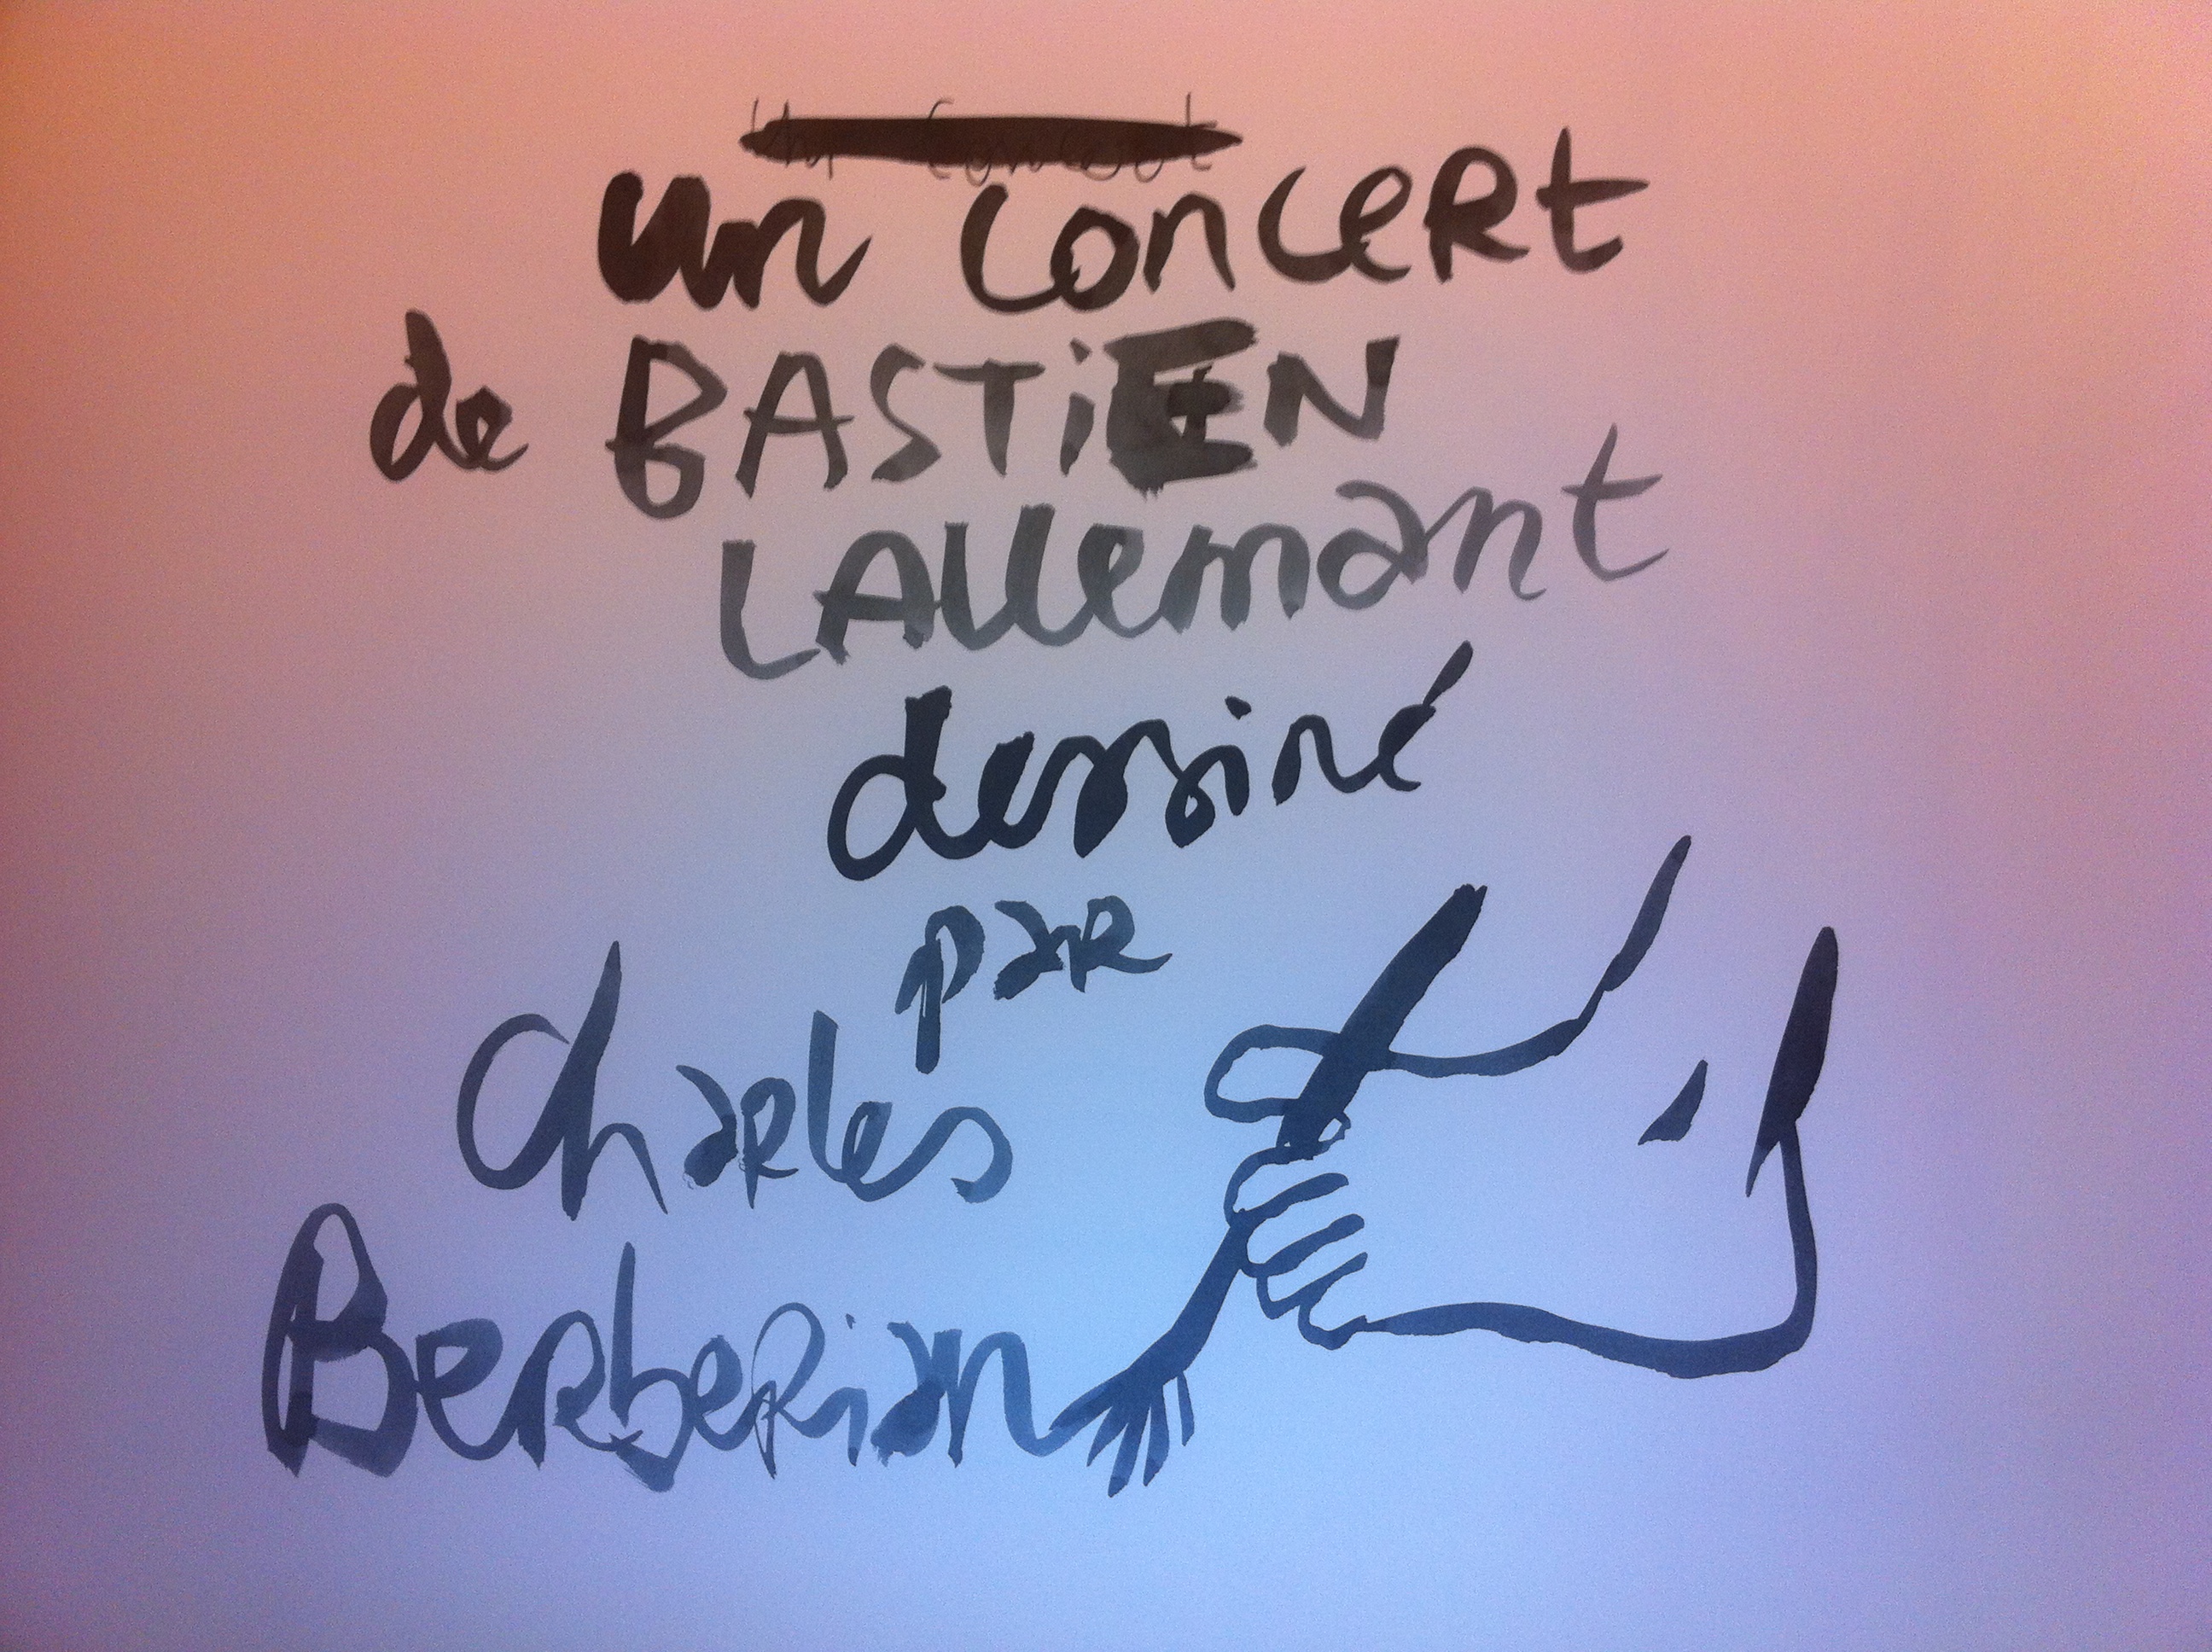 un concert
un concert
de BASTiEN
LAllemant
dessiné
par
Charles
Berberian